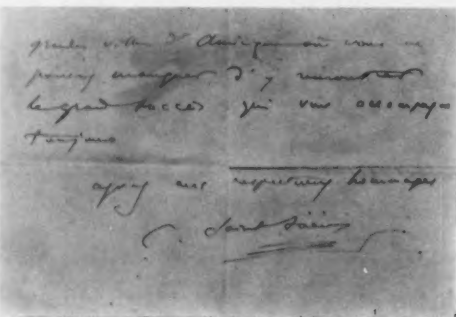 grandes villes d'Amérique où vous ne
pouvez manquer d'y rencontrer
le grand succès qui vous accompagne
toujours
agréez mes respectueux hommages
C. Saint-Saëns